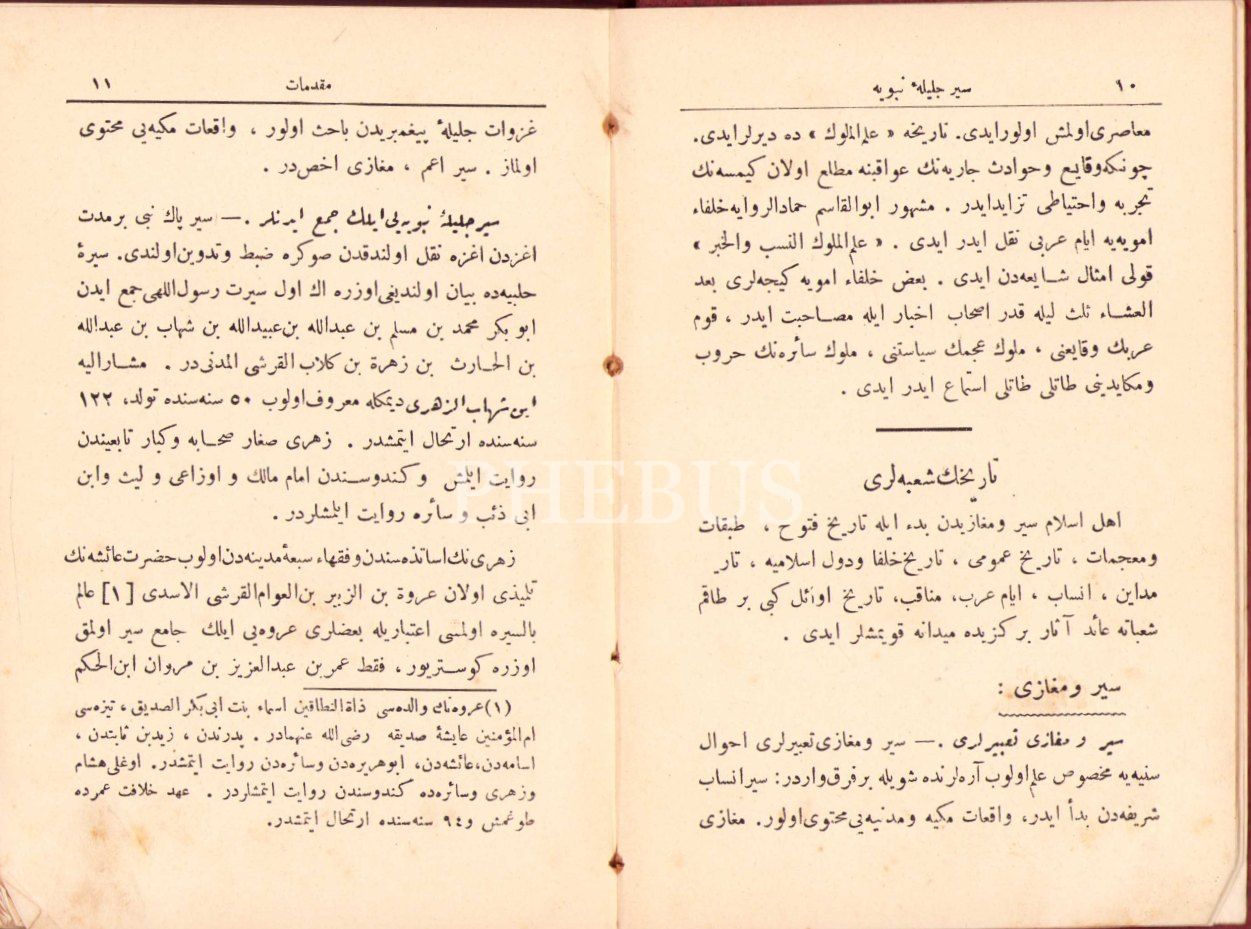 ١٠
سير جليلۀ نبويه
معاصرى اولمش اولور ايدى. تاريخه « علم الملوك » ده ديرلر ايدى.
چونكه وقايع وحوادث جاريه‌نك عواقبنه مطلع اولان كيمسه‌نك
تجربه واحتياطى تزايد ايدر . مشهور ابوالقاسم حماد الروايه خلفاء
امويه‌يه ايام عربى نقل ايدر ايدى . « علم الملوك النسب والخبر »
قولى امثال شايعه‌دن ايدى . بعض خلفاء امويه كيجه‌لرى بعد
العشاء ثلث ليله قدر اصحاب اخبار ايله مصاحبت ايدر ، قوم
عربك وقايعنى ، ملوك عجمك سياستنى ، ملوك سائره‌نك حروب
ومكايدينى طاتلى طاتلى استماع ايدر ايدى .
تاريخك شعبه‌لرى
اهل اسلام سير ومغازيدن بدء ايله تاريخ فتوح ، طبقات
ومعجمات ، تاريخ عمومى ، تاريخ خلفا ودول اسلاميه ، تار يخ
مداين ، انساب ، ايام عرب، مناقب، تاريخ اوائل كبى بر طاقم
شعباته عائد آثار بر كزيده ميدانه قويمشلر ايدى .
سير ومغازى :
سير و مغازى تعبيرلرى . — سير ومغازى تعبيرلرى احوال
سنيه‌يه مخصوص علم اولوب آره‌لرنده شويله بر فرق واردر: سير انساب
شريفه‌دن بدأ ايدر، واقعات مكيه ومدنيه‌يى محتوى اولور. مغازى
مقدمات
١١
غزوات جليلۀ پيغمبريدن باحث اولور ، واقعات مكيه‌يى محتوى
اولماز . سير اعم ، مغازى اخص در .
سير جليلۀ نبويه‌يى ايلك جمع ايدنلر . — سير پاك نبى بر مدت
اغزدن اغزه نقل اولندقدن صوكره ضبط وتدوين اولندى. سيرۀ
حلبيه‌ده بيان اولنديغى اوزره اك اول سيرت رسول‌اللهى جمع ايدن
ابو بكر محمد بن مسلم بن عبدالله بن عبيدالله بن شهاب بن عبدالله
بن الحارث بن زهرة بن كلاب القرشى المدنى در . مشاراليه
ابن شهاب الزهرى ديمكله معروف اولوب ٥٠ سنه‌سنده تولد، ١٢٢
سنه‌سنده ارتحال ايتمشدر . زهرى صغار صحابه وكبار تابعيندن
روايت ايلمش وكندوسندن امام مالك و اوزاعى و ليث وابن
ابى ذئب و سائره روايت ايلمشلردر .
زهرى‌نك اساتذه‌سندن وفقهاء سبعۀ مدينه‌دن اولوب حضرت عائشه‌نك
تلميذى اولان عروة بن الزبير بن العوام القرشى الاسدى [١] عالم
بالسيره اولمسى اعتباريله بعضلرى عروه‌يى ايلك جامع سير اولمق
اوزره كوستريور ، فقط عمر بن عبدالعزيز بن مروان ابن الحكم
(١) عروه‌نك والده‌سى ذاة النطاقين اسماء بنت ابى بكر الصديق ، تيزه‌سى
ام‌المؤمنين عايشۀ صديقه رضى الله عنهمادر . پدرندن ، زيد بن ثابتدن ،
اسامه‌دن، عائشه‌دن، ابوهريره‌دن وسائره‌دن روايت ايتمشدر. اوغلى هشام
وزهرى وسائره‌ده كندوسندن روايت ايتمشلردر . عهد خلافت عمرده
طوغمش و ٩٤ سنه‌سنده ارتحال ايتمشدر.
PHEBUS